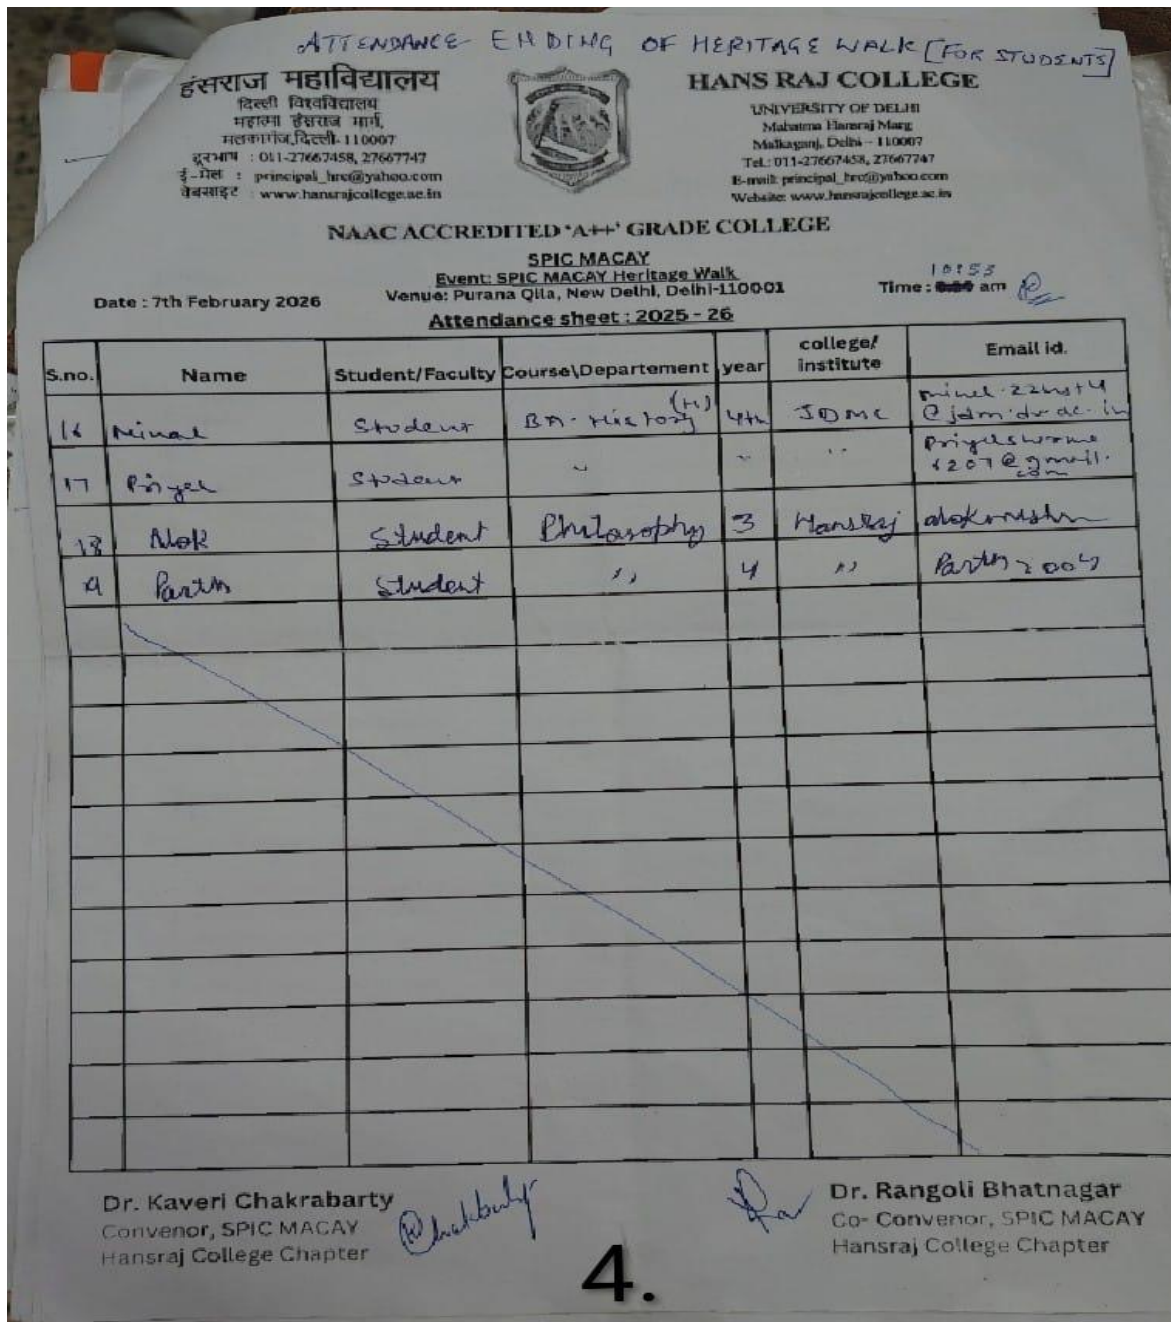 ATTENDANCE ENDING OF HERITAGE WALK [FOR STUDENTS]
हंसराज महाविद्यालय
दिल्ली विश्वविद्यालय
महात्मा हंसराज मार्ग,
मलकागंज,दिल्ली-110007
दूरभाष : 011-27667458, 27667747
ई-मेल : principal_hrc@yahoo.com
वेबसाइट : www.hansrajcollege.ac.in
HANS RAJ COLLEGE
UNIVERSITY OF DELHI
Mahatma Hansraj Marg
Malkaganj, Delhi – 110007
Tel.: 011-27667458, 27667747
E-mail: principal_hrc@yahoo.com
Website: www.hansrajcollege.ac.in
NAAC ACCREDITED 'A++' GRADE COLLEGE
SPIC MACAY
Event: SPIC MACAY Heritage Walk
Venue: Purana Qila, New Delhi, Delhi-110001
Date : 7th February 2026
10:53
Time : am
Attendance sheet : 2025 - 26
S.no. Name Student/Faculty Course\Departement year college/ institute Email id.
16 Minal Student BA. History (H) 4th JDMC @jdm.du.ac.in
17 Student " " " @gmail.com
18 Alok Student Philosophy 3 Hansraj
19 Parth Student ,, 4 ,, Parth2004
Dr. Kaveri Chakrabarty
Convenor, SPIC MACAY
Hansraj College Chapter
Dr. Rangoli Bhatnagar
Co- Convenor, SPIC MACAY
Hansraj College Chapter
4.